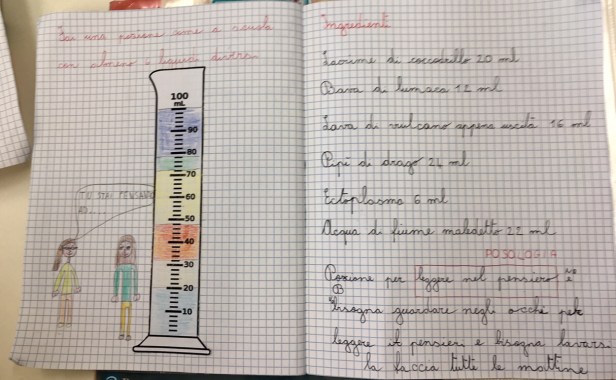 Fai una pozione come a scuola
con almeno 6 liquidi diversi.
100
mL
90
80
70
60
50
40
30
20
10
TU STAI PENSANDO
Ingredienti
Lacrime di coccodrillo 20 ml
Bava di lumaca 12 ml
Lava di vulcano appena uscita 16 ml
Pipì di drago 24 ml
Ectoplasma 6 ml
Acqua di fiume maledetto 22 ml
POSOLOGIA
Pozione per leggere nel pensiero
B
bisogna guardare negli occhi per
leggere il pensiero e bisogna lavarsi
la faccia tutte le mattine